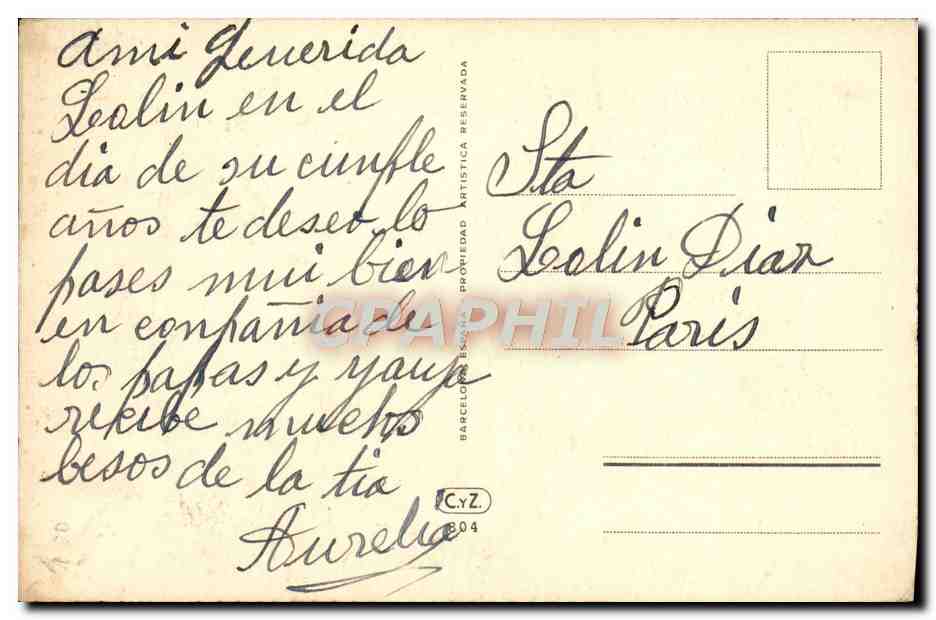 a mi querida
Lolin en el
dia de su cunple
años te deseo lo
pases mui bien
en conpañia de
los papas y
recibe muchos
besos de la tia
Aurelia
BARCELONA ESPAÑA PROPIEDAD ARTISTICA RESERVADA
C.YZ.
804
Sta
Lolin Diaz
Paris
CPAPHIL